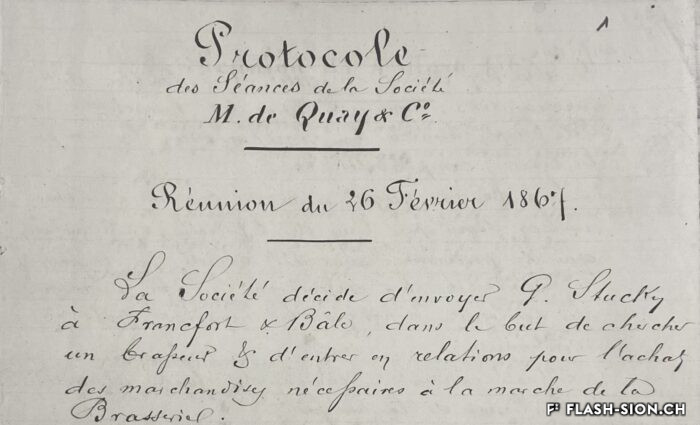 1
Protocole
des Séances de la Société
M. de Quay & Cº.
Réunion du 26 Février 1867.
La Société décide d'envoyer G. Stucky
à Francfort & Bâle, dans le but de chercher
un brasseur & d'entrer en relations pour l'achat
des marchandises nécessaires à la marche de la
Brasserie.
FLASH-SION.CH